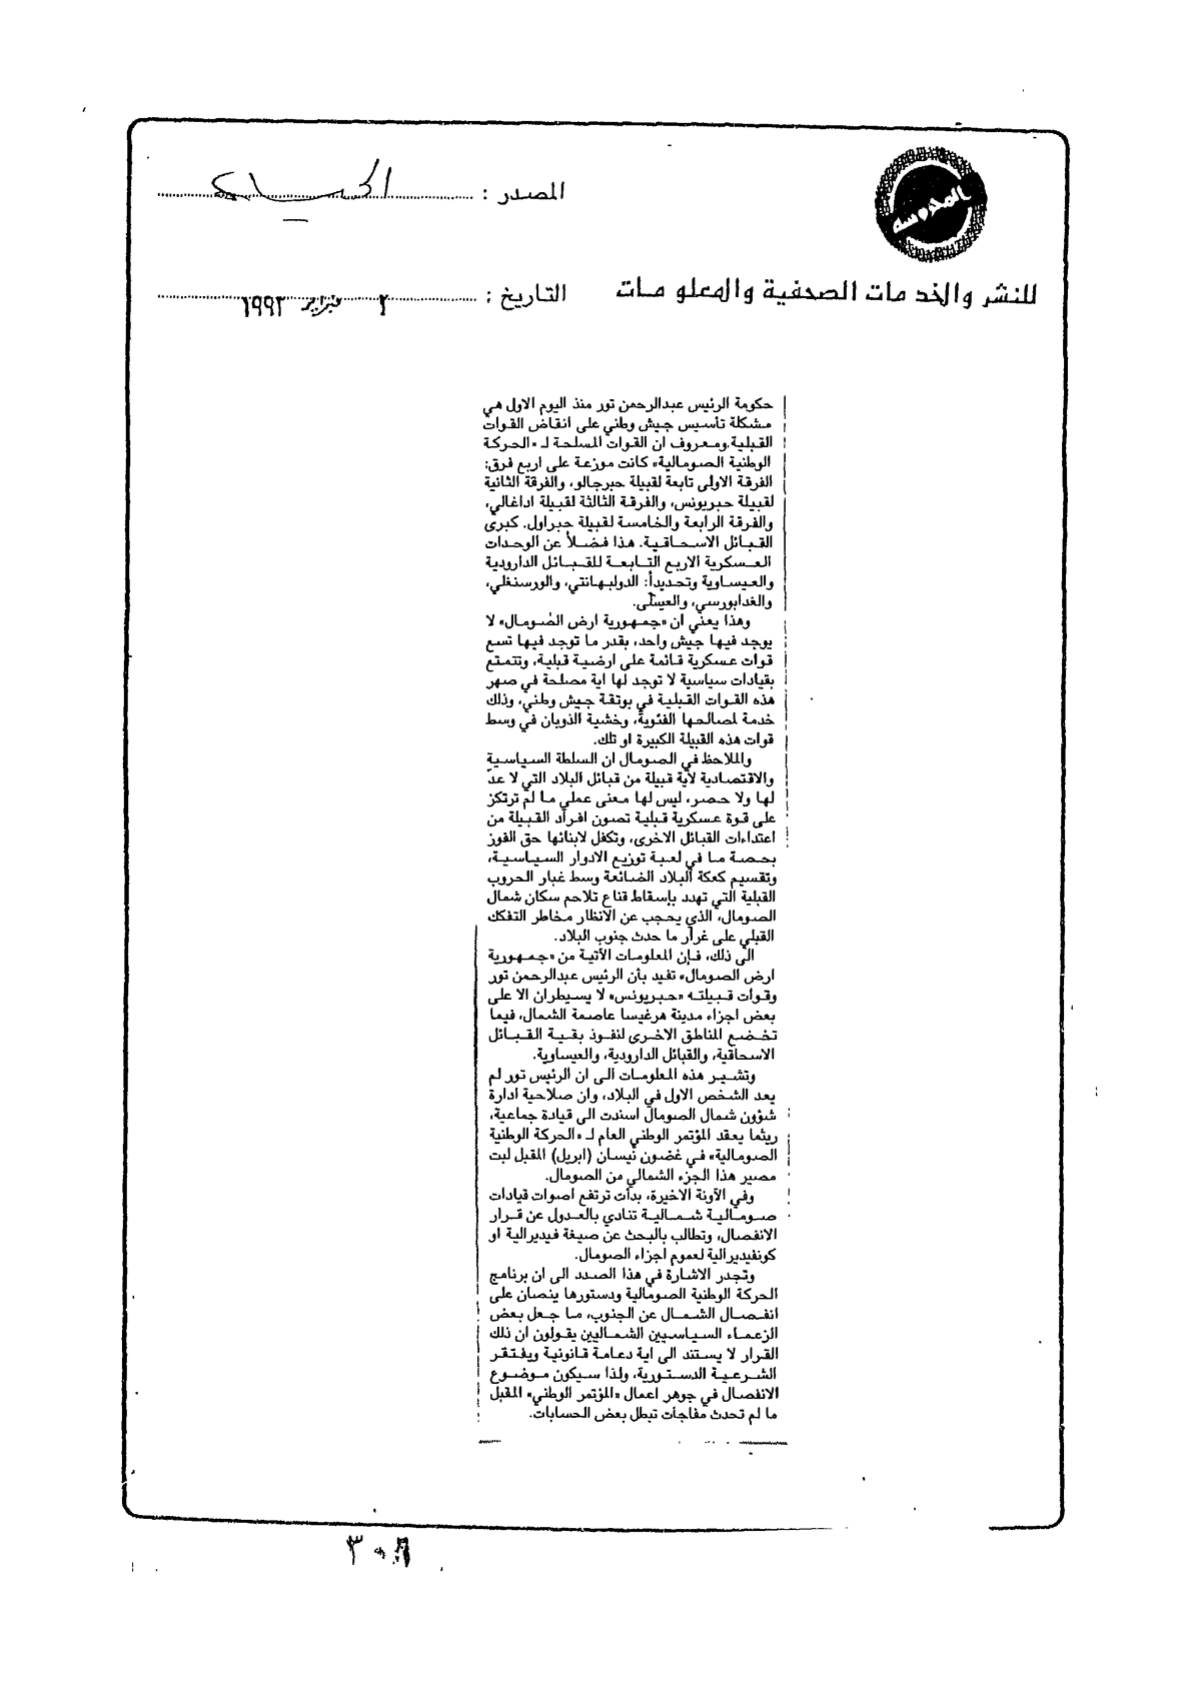 المصدر : الحياة
المحروسة
للنشر والخدمات الصحفية والمعلومات
التاريخ : ٢ فبراير ١٩٩٢
حكومة الرئيس عبدالرحمن تور منذ اليوم الاول هي
مشكلة تأسيس جيش وطني على انقاض القوات
القبلية. ومعروف ان القوات المسلحة لـ «الحركة
الوطنية الصومالية» كانت موزعة على اربع فرق:
الفرقة الاولى تابعة لقبيلة حبرجالو، والفرقة الثانية
لقبيلة حبريونس، والفرقة الثالثة لقبيلة اداغالي،
والفرقة الرابعة والخامسة لقبيلة حبراول. كبرى
القبائل الاسحاقية. هذا فضلاً عن الوحدات
العسكرية الاربع التابعة للقبائل الدارودية
والعيساوية وتحديداً: الدولبهانتي، والورسنغلي،
والغدابورسي، والعيسى.
وهذا يعني ان «جمهورية ارض الصومال» لا
يوجد فيها جيش واحد، بقدر ما توجد فيها تسع
قوات عسكرية قائمة على ارضية قبلية، وتتمتع
بقيادات سياسية لا توجد لها اية مصلحة في صهر
هذه القوات القبلية في بوتقة جيش وطني، وذلك
خدمة لمصالحها الفئوية، وخشية الذوبان في وسط
قوات هذه القبيلة الكبيرة او تلك.
والملاحظ في الصومال ان السلطة السياسية
والاقتصادية لأية قبيلة من قبائل البلاد التي لا عدّ
لها ولا حصر، ليس لها معنى عملي ما لم ترتكز
على قوة عسكرية قبلية تصون افراد القبيلة من
اعتداءات القبائل الاخرى، وتكفل لابنائها حق الفوز
بحصة ما في لعبة توزيع الادوار السياسية،
وتقسيم كعكة البلاد الضائعة وسط غبار الحروب
القبلية التي تهدد بإسقاط قناع تلاحم سكان شمال
الصومال، الذي يحجب عن الانظار مخاطر التفكك
القبلي على غرار ما حدث جنوب البلاد.
الى ذلك، فإن المعلومات الآتية من «جمهورية
ارض الصومال» تفيد بأن الرئيس عبدالرحمن تور
وقوات قبيلته «حبريونس» لا يسيطران الا على
بعض اجزاء مدينة هرغيسا عاصمة الشمال، فيما
تخضع المناطق الاخرى لنفوذ بقية القبائل
الاسحاقية، والقبائل الدارودية، والعيساوية.
وتشير هذه المعلومات الى ان الرئيس تور لم
يعد الشخص الاول في البلاد، وان صلاحية ادارة
شؤون شمال الصومال اسندت الى قيادة جماعية،
ريثما يعقد المؤتمر الوطني العام لـ «الحركة الوطنية
الصومالية» في غضون نيسان (ابريل) المقبل لبت
مصير هذا الجزء الشمالي من الصومال.
وفي الآونة الاخيرة، بدأت ترتفع اصوات قيادات
صومالية شمالية تنادي بالعدول عن قرار
الانفصال، وتطالب بالبحث عن صيغة فيديرالية او
كونفيديرالية لعموم اجزاء الصومال.
وتجدر الاشارة في هذا الصدد الى ان برنامج
الحركة الوطنية الصومالية ودستورها ينصان على
انفصال الشمال عن الجنوب، ما جعل بعض
الزعماء السياسيين الشماليين يقولون ان ذلك
القرار لا يستند الى اية دعامة قانونية ويفتقر
الشرعية الدستورية، ولذا سيكون موضوع
الانفصال في جوهر اعمال «المؤتمر الوطني» المقبل
ما لم تحدث مفاجآت تبطل بعض الحسابات.